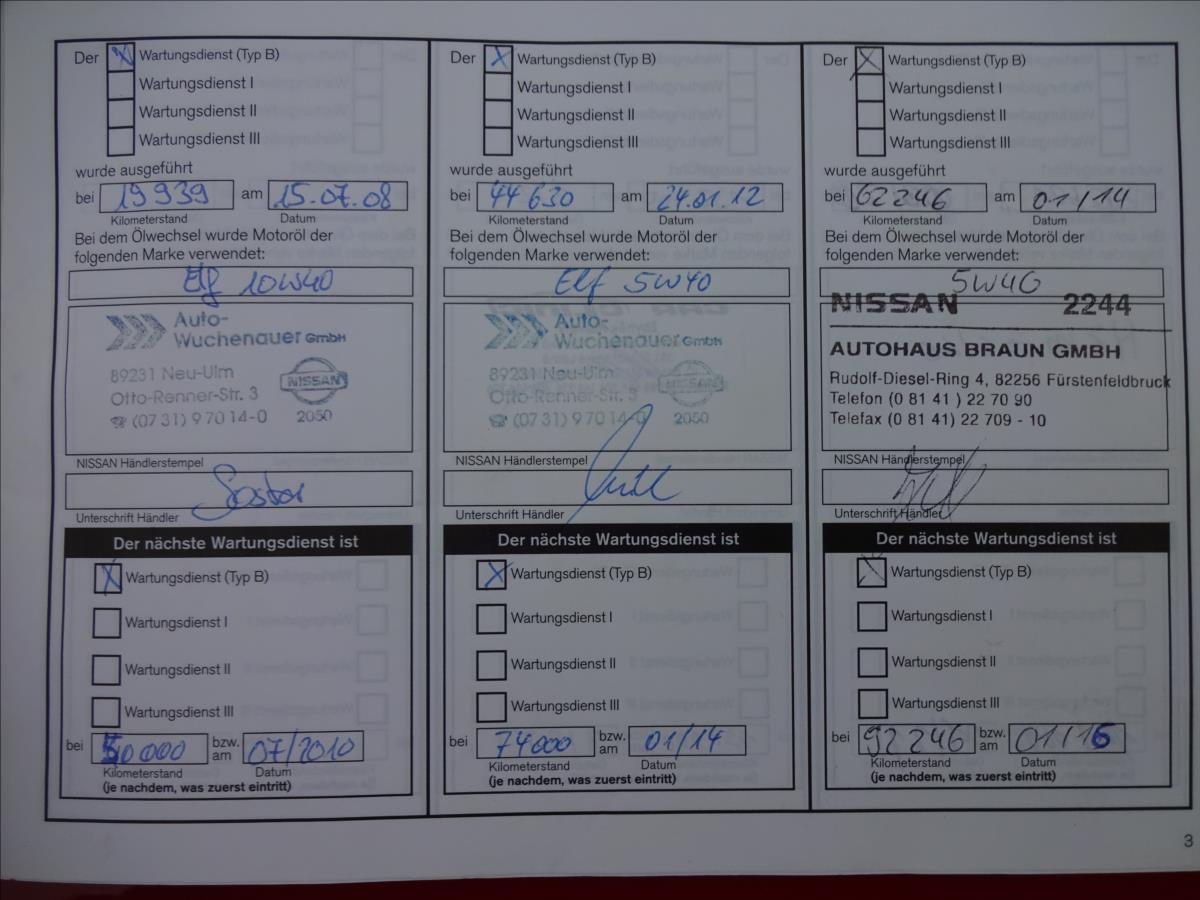 Der Wartungsdienst (Typ B)
Wartungsdienst I
Wartungsdienst II
Wartungsdienst III
wurde ausgeführt
bei 19939 am 15.07.08
Kilometerstand Datum
Bei dem Ölwechsel wurde Motoröl der
folgenden Marke verwendet:
Elf 10W40
Auto-
Wuchenauer GmbH
89231 Neu-Ulm
Otto-Renner-Str. 3
(0731) 9 70 14-0
NISSAN
2050
NISSAN Händlerstempel
Unterschrift Händler
Der nächste Wartungsdienst ist
Wartungsdienst (Typ B)
Wartungsdienst I
Wartungsdienst II
Wartungsdienst III
bei 50000 bzw. am 07/2010
Kilometerstand Datum
(je nachdem, was zuerst eintritt)
Der Wartungsdienst (Typ B)
Wartungsdienst I
Wartungsdienst II
Wartungsdienst III
wurde ausgeführt
bei 44630 am 24.01.12
Kilometerstand Datum
Bei dem Ölwechsel wurde Motoröl der
folgenden Marke verwendet:
Elf 5W40
Auto-
Wuchenauer GmbH
89231 Neu-Ulm
Otto-Renner-Str. 3
(0731) 9 70 14-0
NISSAN
2050
NISSAN Händlerstempel
Unterschrift Händler
Der nächste Wartungsdienst ist
Wartungsdienst (Typ B)
Wartungsdienst I
Wartungsdienst II
Wartungsdienst III
bei 74000 bzw. am 01/14
Kilometerstand Datum
(je nachdem, was zuerst eintritt)
Der Wartungsdienst (Typ B)
Wartungsdienst I
Wartungsdienst II
Wartungsdienst III
wurde ausgeführt
bei 62246 am 01/14
Kilometerstand Datum
Bei dem Ölwechsel wurde Motoröl der
folgenden Marke verwendet:
5W40
NISSAN 2244
AUTOHAUS BRAUN GMBH
Rudolf-Diesel-Ring 4, 82256 Fürstenfeldbruck
Telefon (0 81 41 ) 22 70 90
Telefax (0 81 41) 22 709 - 10
NISSAN Händlerstempel
Unterschrift Händler
Der nächste Wartungsdienst ist
Wartungsdienst (Typ B)
Wartungsdienst I
Wartungsdienst II
Wartungsdienst III
bei 92246 bzw. am 01/16
Kilometerstand Datum
(je nachdem, was zuerst eintritt)
3